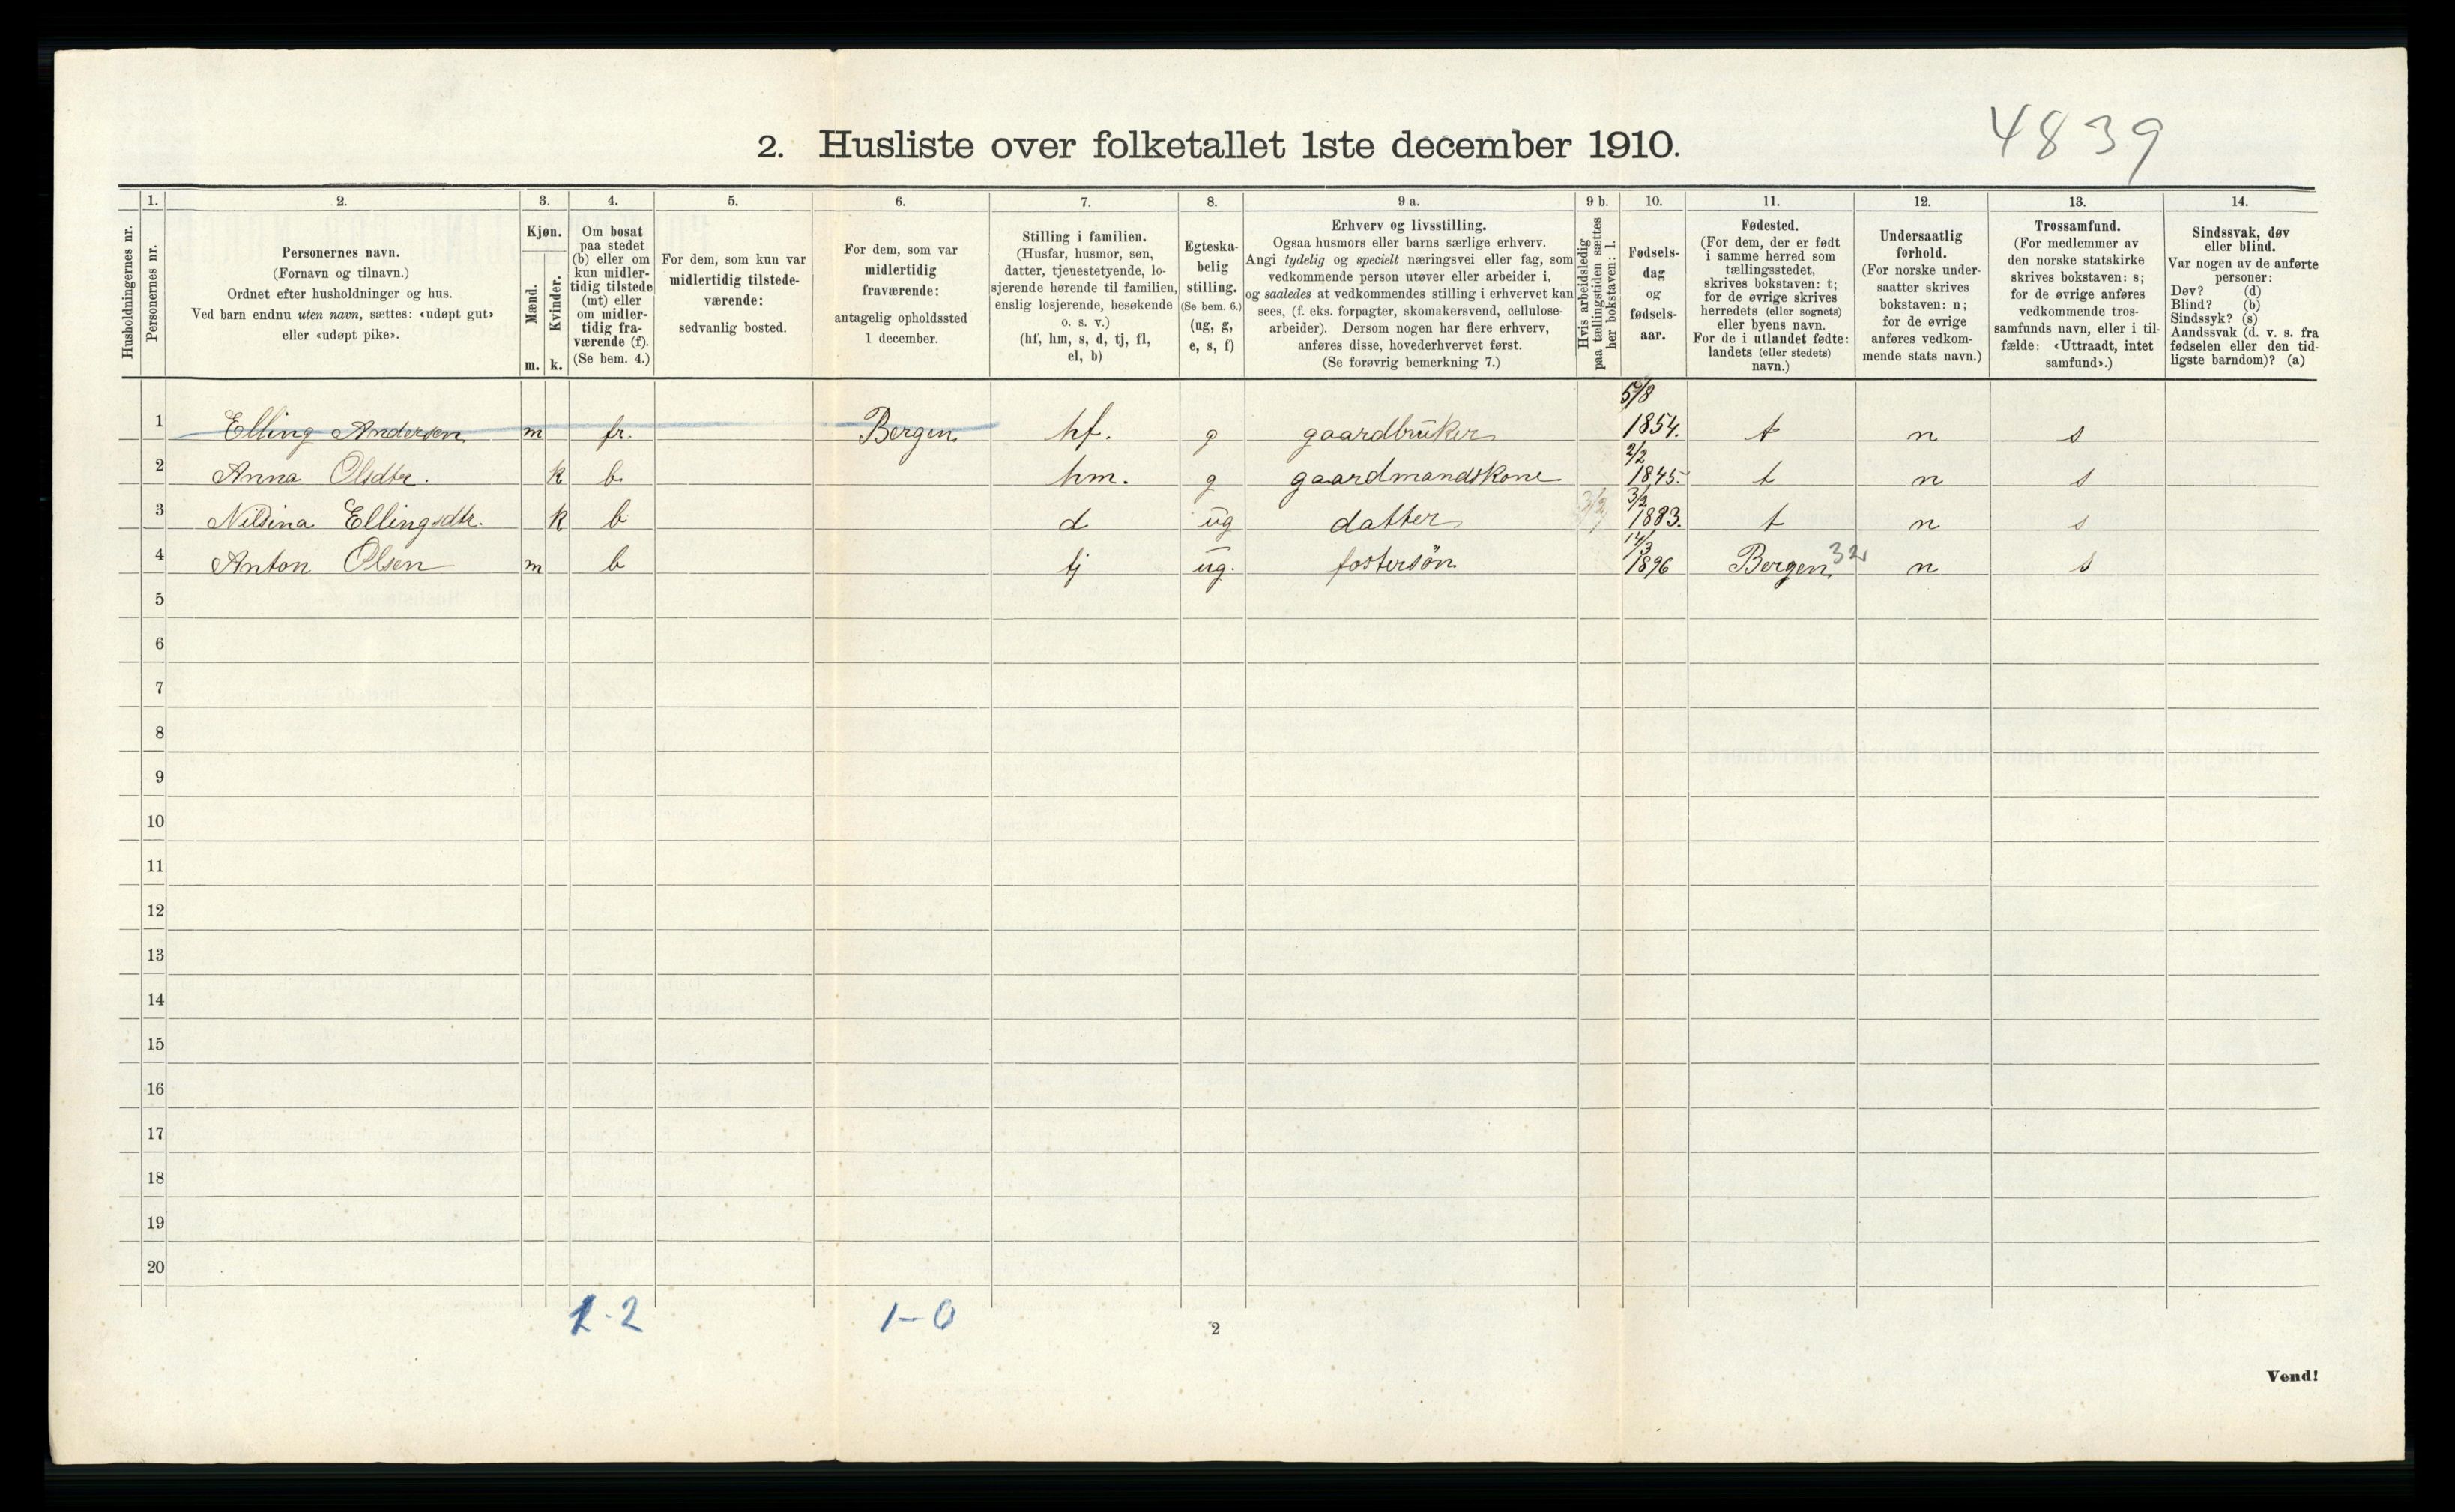 4839
2. Husliste over folketallet 1ste december 1910.
Husholdningernes nr.
1.
Personernes nr.
2.
Personernes navn.
(Fornavn og tilnavn.)
Ordnet efter husholdninger og hus.
Ved barn endnu uten navn, sættes: «udøpt gut»
eller «udøpt pike».
3.
Kjøn.
Mænd.
m.
Kvinder.
k.
4.
Om bosat
paa stedet
(b) eller om
kun midler-
tidig tilstede
(mt) eller
om midler-
tidig fra-
værende (f).
(Se bem. 4.)
5.
For dem, som kun var
midlertidig tilstede-
værende:
sedvanlig bosted.
6.
For dem, som var
midlertidig
fraværende:
antagelig opholdssted
1 december.
7.
Stilling i familien.
(Husfar, husmor, søn,
datter, tjenestetyende, lo-
sjerende hørende til familien,
enslig losjerende, besøkende
o. s. v.)
(hf, hm, s, d, tj, fl,
el, b)
8.
Egteska-
belig
stilling.
(Se bem. 6.)
(ug, g,
e, s, f)
9 a.
Erhverv og livsstilling.
Ogsaa husmors eller barns særlige erhverv.
Angi tydelig og specielt næringsvei eller fag, som
vedkommende person utøver eller arbeider i,
og saaledes at vedkommendes stilling i erhvervet kan
sees, (f. eks. forpagter, skomakersvend, cellulose-
arbeider). Dersom nogen har flere erhverv,
anføres disse, hovederhvervet først.
(Se forøvrig bemerkning 7.)
9 b.
Hvis arbeidsledig
paa tællingstiden sættes
her bokstaven: l.
10.
Fødsels-
dag
og
fødsels-
aar.
11.
Fødested.
(For dem, der er født
i samme herred som
tællingsstedet,
skrives bokstaven: t;
for de øvrige skrives
herredets (eller sognets)
eller byens navn.
For de i utlandet fødte:
landets (eller stedets)
navn.)
12.
Undersaatlig
forhold.
(For norske under-
saatter skrives
bokstaven: n;
for de øvrige
anføres vedkom-
mende stats navn.)
13.
Trossamfund.
(For medlemmer av
den norske statskirke
skrives bokstaven: s;
for de øvrige anføres
vedkommende tros-
samfunds navn, eller i til-
fælde: «Uttraadt, intet
samfund».)
14.
Sindssvak, døv
eller blind.
Var nogen av de anførte
personer:
Døv? (d)
Blind? (b)
Sindssyk? (s)
Aandssvak (d. v. s. fra
fødselen eller den tid-
ligste barndom)? (a)
1 Elling Andersen m fr. Bergen hf. g gaardbruker 5/8 1854. t n s
2 Anna Olsdtr. k b hm. g gaardmandskone 2/2 1845. t n s
3 Nilsina Ellingsdtr. k b d ug datter 3/2 3/2 1883. t n s
4 Anton Olsen m b tj ug. fostersøn 14/3 1896 Bergen 32 n s
5
6
7
8
9
10
11
12
13
14
15
16
17
18
19
20
1-2
1-0
2
Vend!